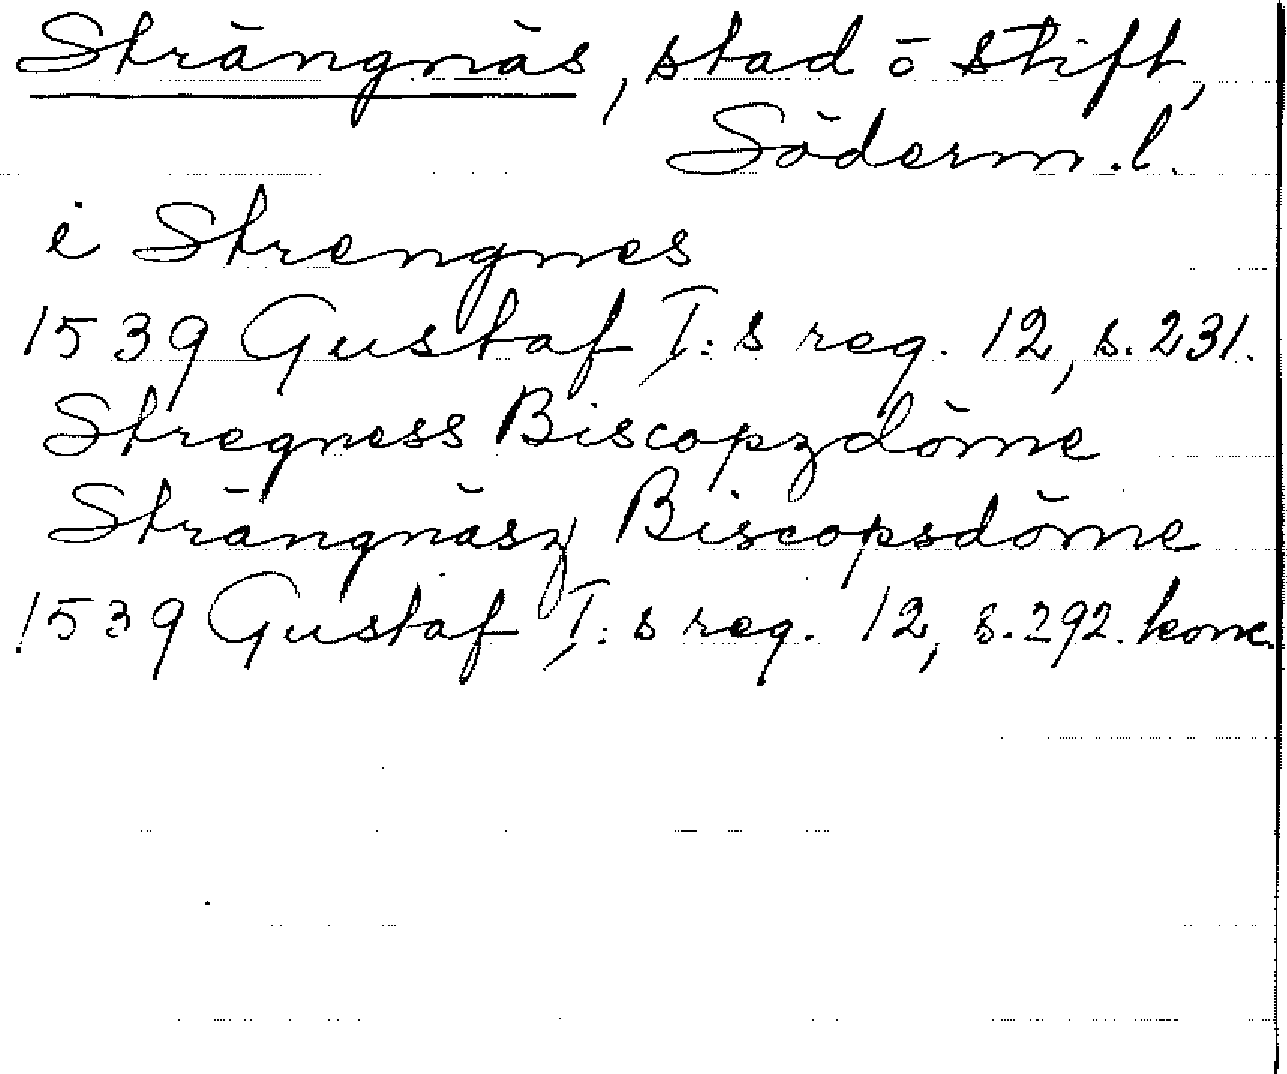 Strängnäs, stad ö stift,
Söderm.l.
i Strengnes
1539 Gustaf I:s reg. 12, s. 231.
Stregness Biscopzdöme
Strängnäsz Biscopsdöme
1539 Gustaf I:s reg. 12, s. 292. konc.